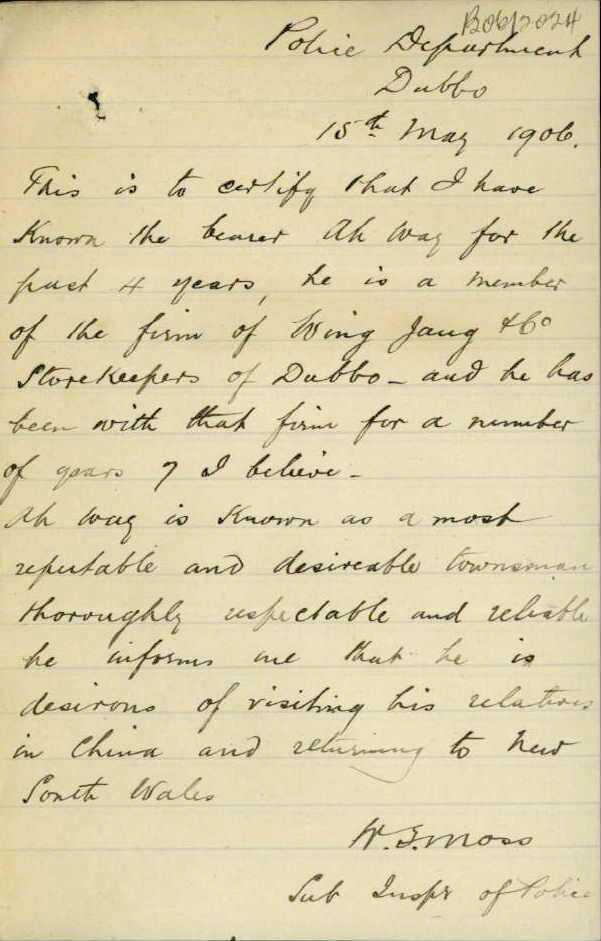 B06/2024
Police Department
Dubbo
15th May 1906.
This is to certify that I have
Known the bearer Ah Way for the
past 4 years, he is a member
of the firm of Wing Jang & Co
Storekeepers of Dubbo - and he has
been with that firm for a number
of years 7 I believe -
Ah Way is Known as a most
reputable and desireable townsman
thoroughly respectable and reliable
he informs me that he is
desirous of visiting his relatives
in China and returning to New
South Wales
W. E. Moss
Sub Inspr of Police